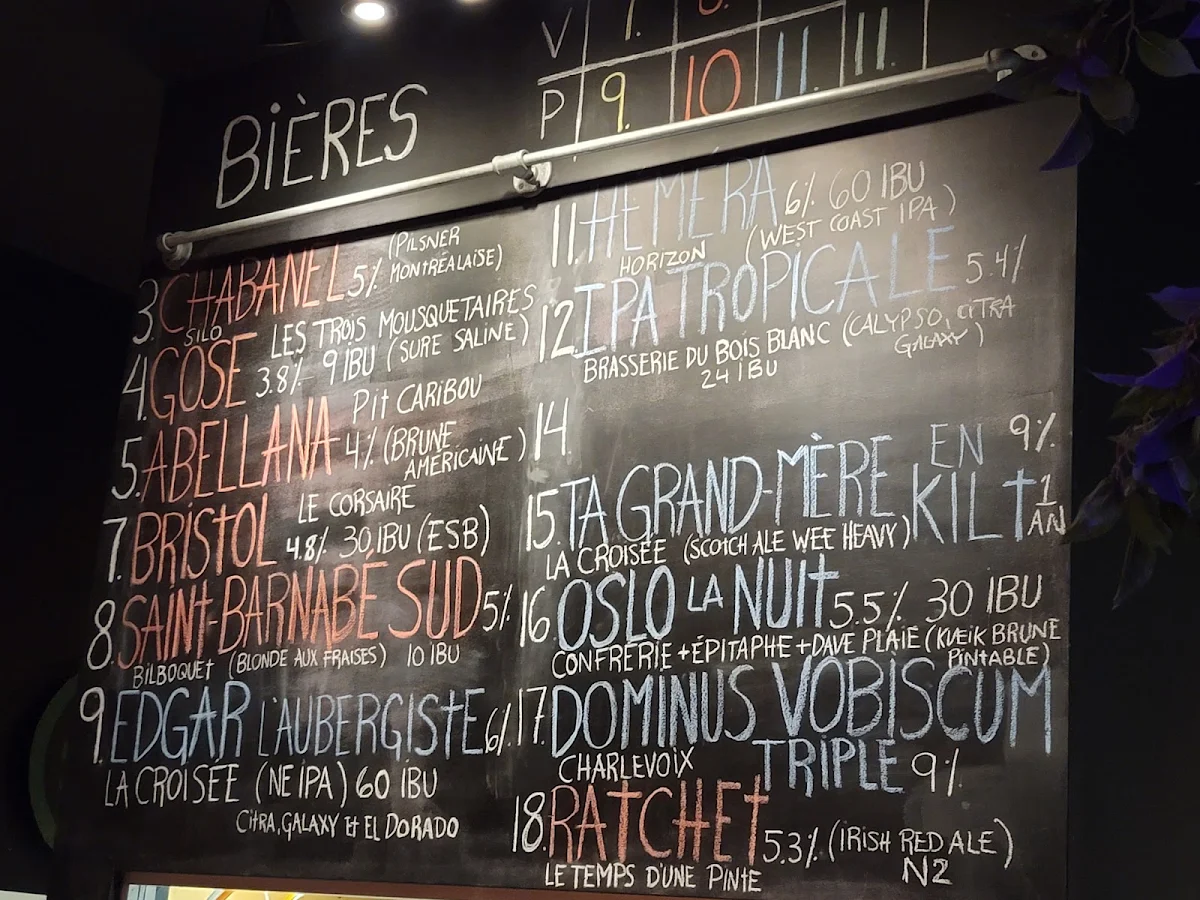 BIÈRES
V
P 9. 10 11. 11.
3. CHABANEL 5% (PILSNER
MONTRÉALAISE)
SILO
4. GOSE LES TROIS MOUSQUETAIRES
3.8% 9 IBU (SURE SALINE)
5. ABELLANA Pit CARIBOU
4% (BRUNE
AMÉRICAINE)
7. BRISTOL LE CORSAIRE
4.8% 30 IBU (ESB)
8. SAINT-BARNABÉ SUD 5%
BILBOQUET (BLONDE AUX FRAISES) 10 IBU
9. EDGAR L'AUBERGISTE 6%
LA CROISÉE (NEIPA) 60 IBU
CITRA, GALAXY Et EL DORADO
11. HÉMÉRA 6% 60 IBU
HORIZON (WEST COAST IPA)
12. IPA TROPICALE 5.4%
BRASSERIE DU BOIS BLANC (CALYPSO, CITRA
GALAXY)
24 IBU
14.
15. TA GRAND-MÈRE EN KILT 9%
LA CROISÉE (SCOTCH ALE WEE HEAVY) 1 AN
16. OSLO LA NUIT 5.5% 30 IBU
CONFRÉRIE + ÉPITAPHE + DAVE PLAIE (KVEIK BRUNE
PINTABLE)
17. DOMINUS VOBISCUM
CHARLEVOIX TRIPLE 9%
18. RATCHET 5.3% (IRISH RED ALE)
LE TEMPS D'UNE PINTE N2